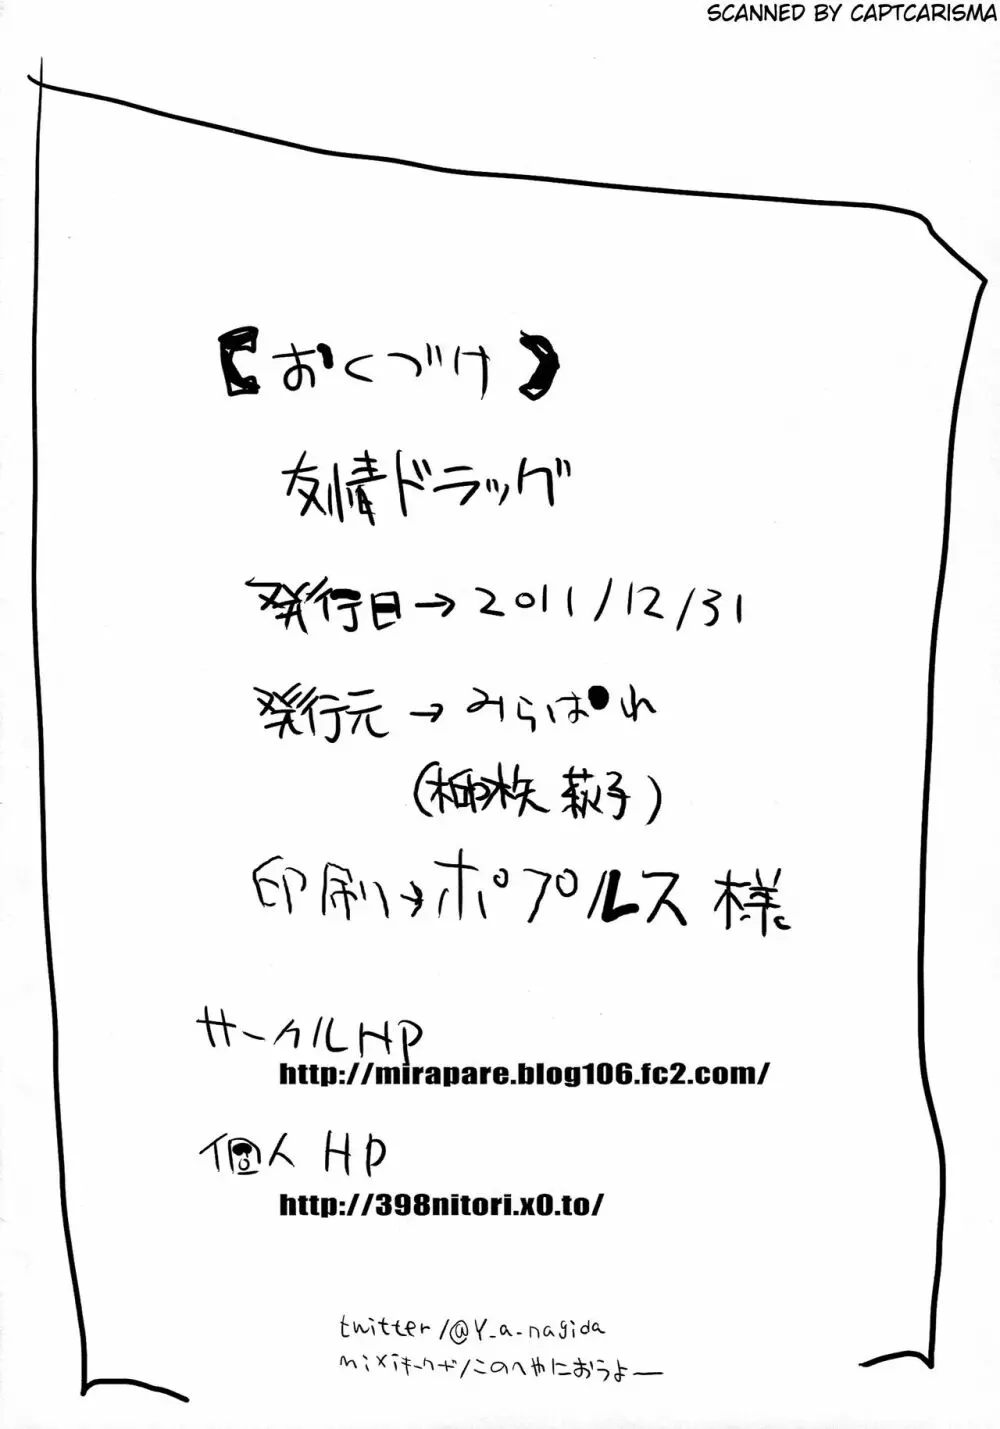 SCANNED BY CAPTCARISMA
【おくづけ】
友情ドラッグ
発行日→2011/12/31
発行元→みらぱれ
(
萩子)
印刷→ポプルス様
サークルHP
http://mirapare.blog106.fc2.com/
個人HP
http://398nitori.x0.to/
twitter/@Y_a_nagida
mixiキーワード/このへやにおうよー